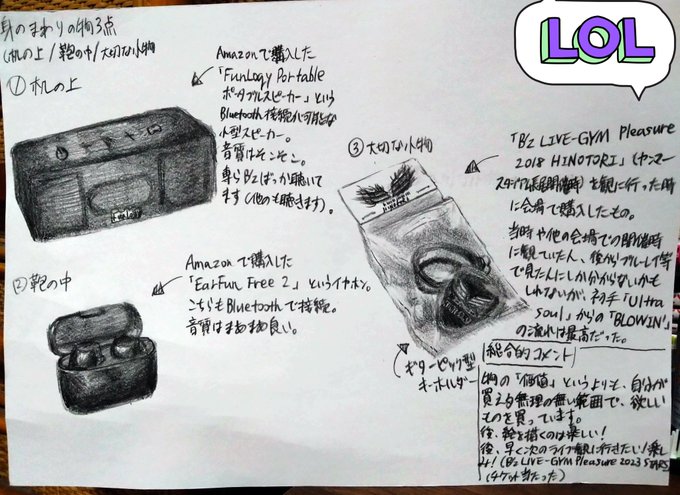 身のまわりの物3点
(机の上/鞄の中/大切な小物
LOL
① 机の上
Amazonで購入した
「FunLogy Portable
ポータブルスピーカー」という
Bluetooth接続が可能な
小型スピーカー。
音質はそこそこ。
専らB'zばっか聴いて
ます(他のも聴きます)。
FunLogy
② 鞄の中
Amazonで購入した
「EarFun Free 2」というイヤホン。
こちらもBluetoothで接続。
音質はまあまあ良い。
③ 大切な小物
「B'z LIVE-GYM Pleasure
2018 HINOTORI」(ヤンマー
スタジアム長居開催時)を観に行った時
に会場で購入したもの。
当時や他の会場での開催時
に観ていた人、後からブルーレイ等
で見た人にしか分からないかも
しれないが、初手「Ultra
soul」からの「BLOWIN'」
の流れは最高だった。
ギターピック型
キーホルダー
総合的コメント
物の「価値」というよりも、自分が
買える無理の無い範囲で、欲しい
ものを買っています。
後、絵を描くのは楽しい!
後、早く次のライブ観に行きたい!楽し
み!(B'z LIVE-GYM Pleasure 2023 STARS
(チケット当たった)